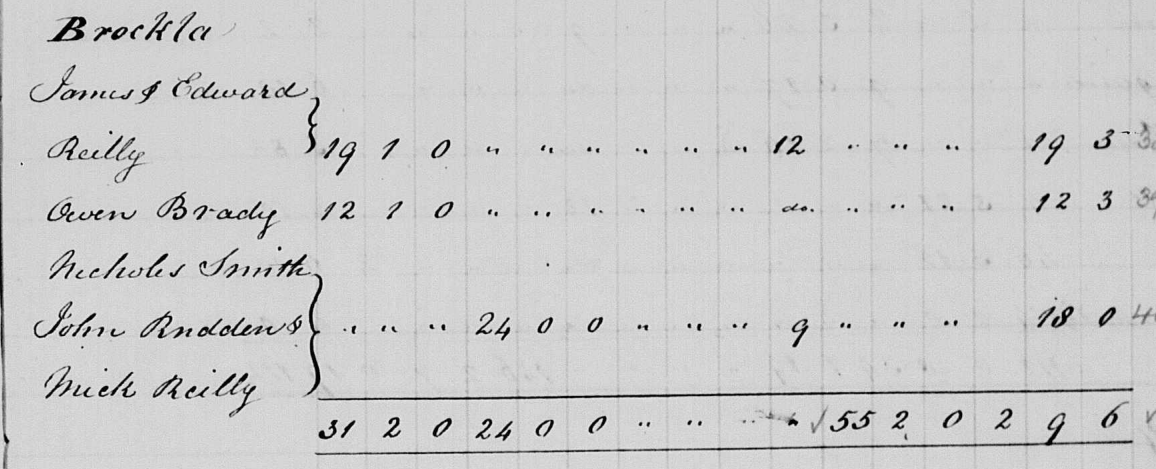 Brockla
James & Edward
Reilly 19 1 0 " " " " " " 12 " " " 19 3
Owen Brady 12 1 0 " " " " " " do. " " " 12 3
Nicholes Smith
John Rudden & " " " 24 0 0 " " " 9 " " " 18 0
Mick Reilly
31 2 0 24 0 0 " " " " √ 55 2 0 2 9 6